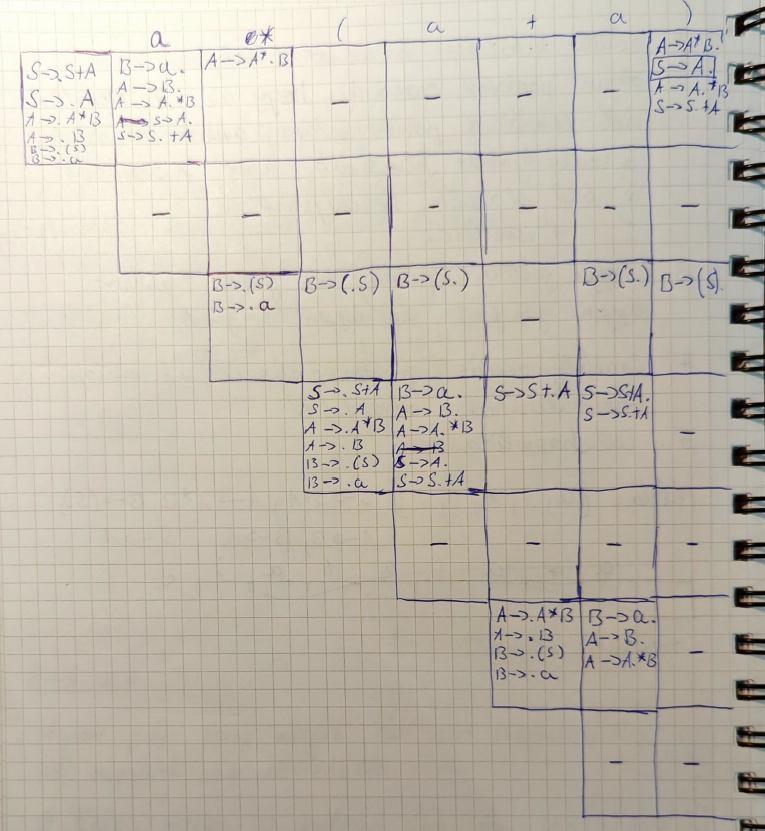 a * ( a + a )
S→.S+A
S→.A
A→.A*B
A→.B
B→.(S)
B→.a
B→a.
A→B.
A→A.*B
S→A.
S→S.+A
A→A*.B
–
–
–
–
A→A*B.
S→A.
A→A.*B
S→S.+A
–
–
–
–
–
–
–
B→.(S)
B→.a
B→(.S)
B→(S.)
–
B→(S.)
B→(S).
S→.S+A
S→.A
A→.A*B
A→.B
B→.(S)
B→.a
B→a.
A→B.
A→A.*B
A→B
S→A.
S→S.+A
S→S+.A
S→S+A.
S→S.+A
–
–
–
–
–
A→.A*B
A→.B
B→.(S)
B→.a
B→a.
A→B.
A→A.*B
–
–
–